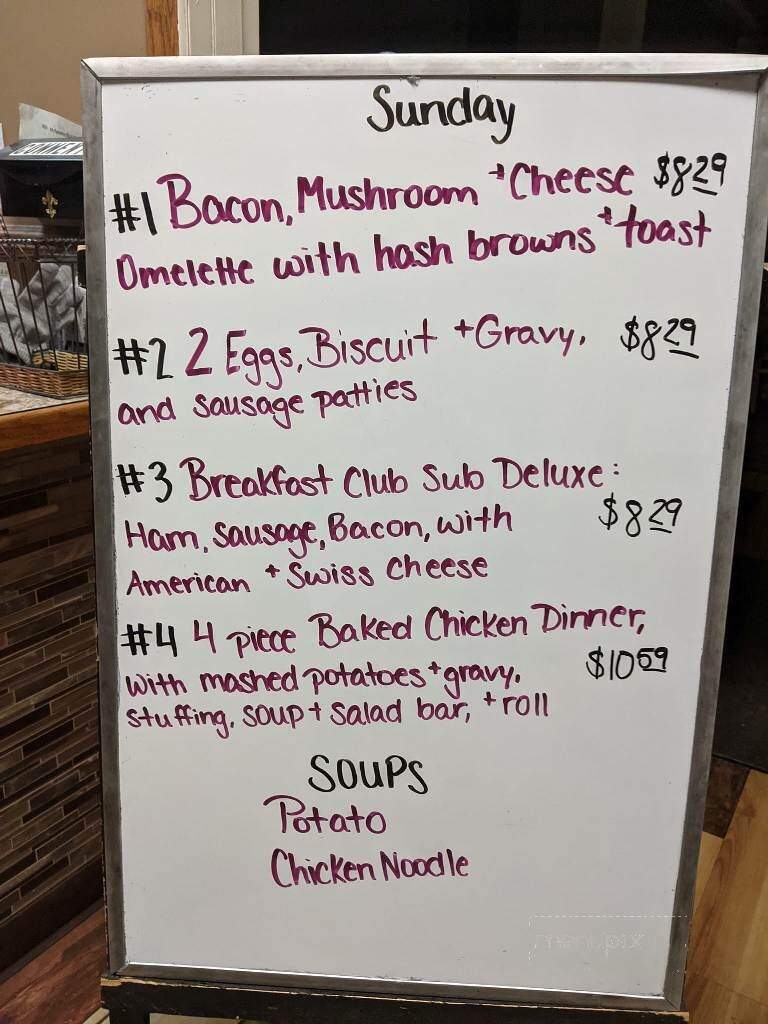 Sunday
#1 Bacon, Mushroom + Cheese $8.29
Omelette with hash browns + toast
#2 2 Eggs, Biscuit + Gravy, $8.29
and sausage patties
#3 Breakfast Club Sub Deluxe:
Ham, Sausage, Bacon, with $8.29
American + Swiss Cheese
#4 4 piece Baked Chicken Dinner,
with mashed potatoes + gravy, $10.59
stuffing, soup + salad bar, + roll
SOUPS
Potato
Chicken Noodle
menupix